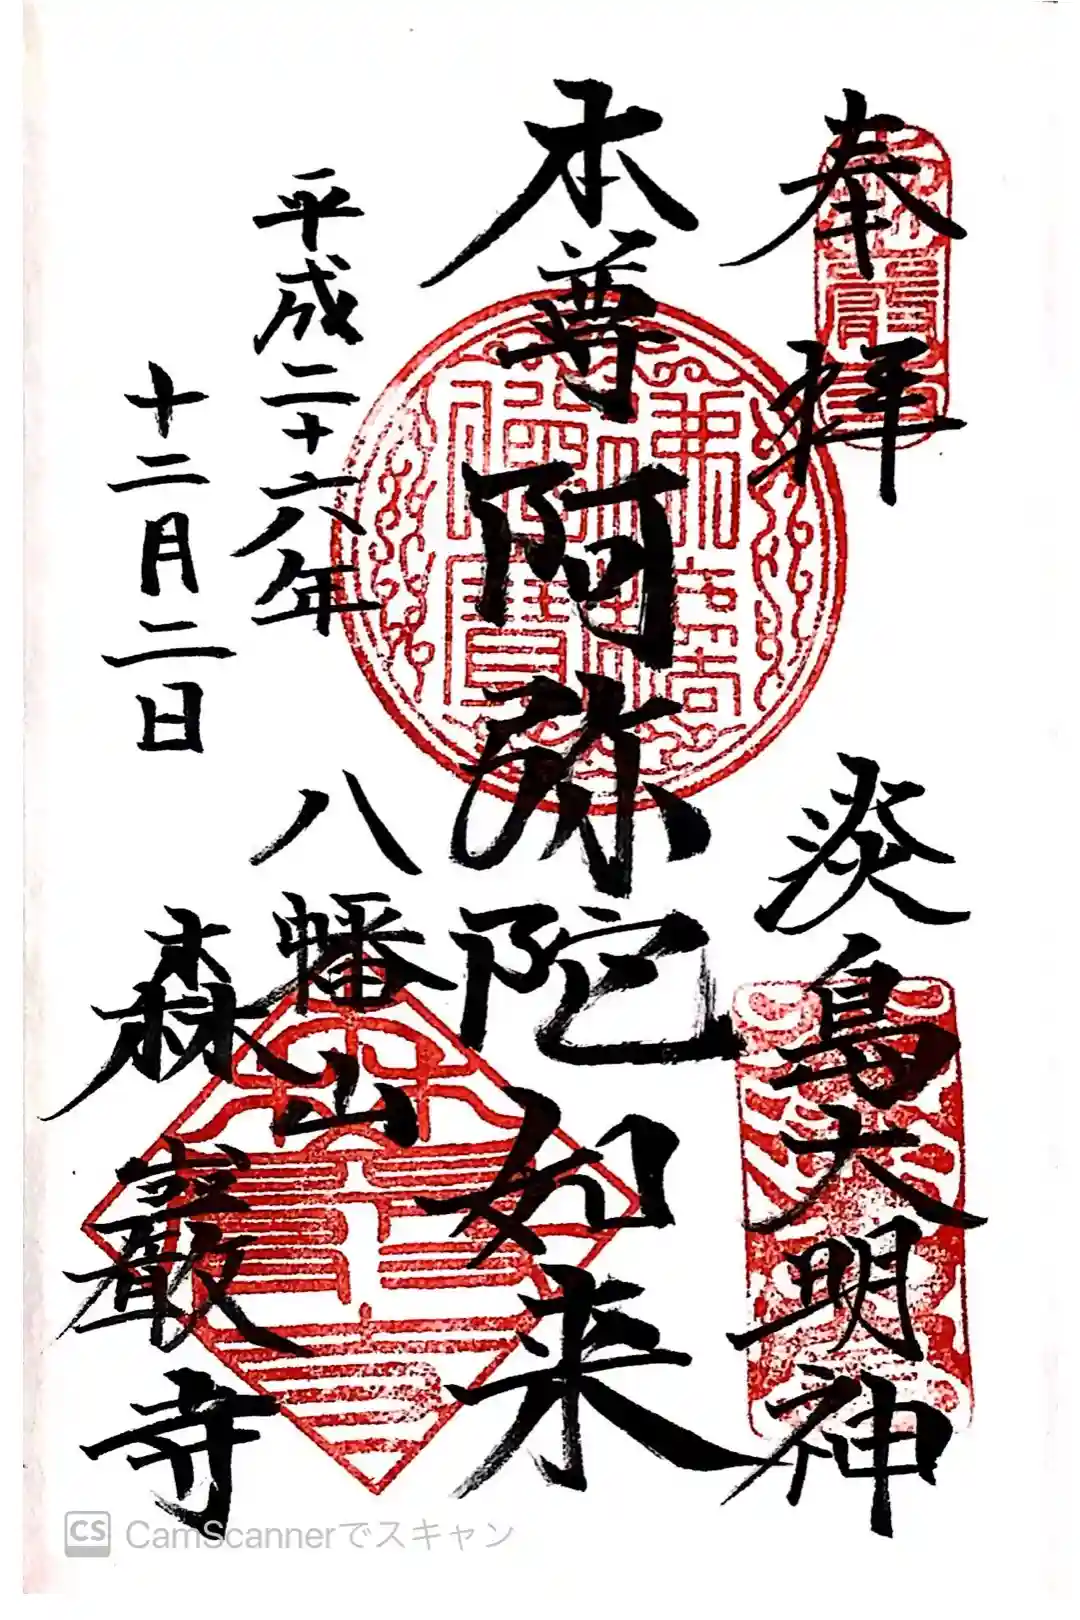 奉拝
淡島大明神
本尊阿弥陀如来
佛法僧寳
平成二十六年
十二月二日
八幡山
森巖寺
CS CamScannerでスキャン